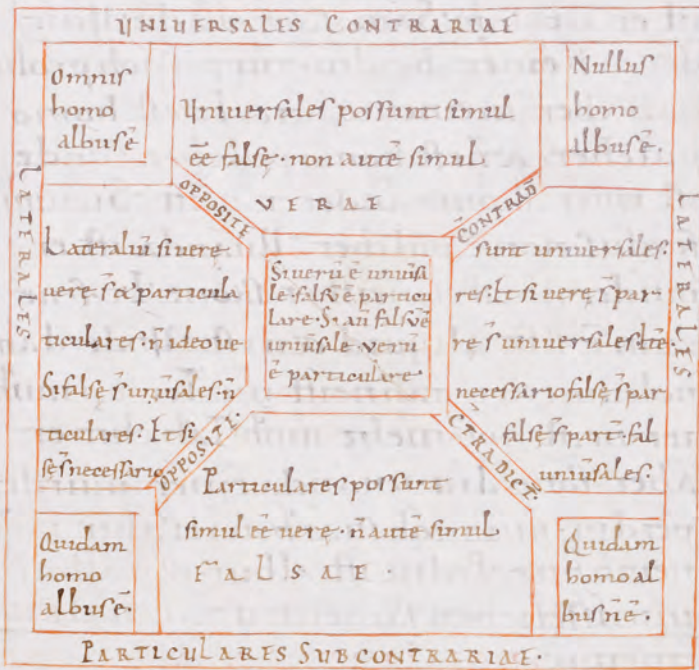 UNIVERSALES CONTRARIAE
Omnis
homo
albus ē
Universales possunt simul
ēē falsę · non autē simul
VERAE
Nullus
homo
albus ē ·
LATERALES
OPPOSITE
CONTRAD
LATERALES
Lateraliū si verę
verę s̄ & particul
ticulares · n̄ ideo ve
Si falsę s̄ univ̄sales · n̄
ticulares · Et si
sę s̄ necessario
Si verū ē univ̄sa
le falsū ē particu
lare · Si aū falsū ē
univ̄sale verū
ē particulare ·
sunt universales ·
res · Et si verę s̄ par
rę s̄ universales · Itē
necessario falsę s̄ par
falsę s̄ par n̄ fal
univ̄sales ·
OPPOSITE ·
C̄TRADICT ·
Particulares possunt
simul ēē verę · n̄ autē simul
FALSAE ·
Quidam
homo
albus ē ·
Quidam
homo al
bus n̄ ē ·
PARTICULARES SUBCONTRARIAE ·